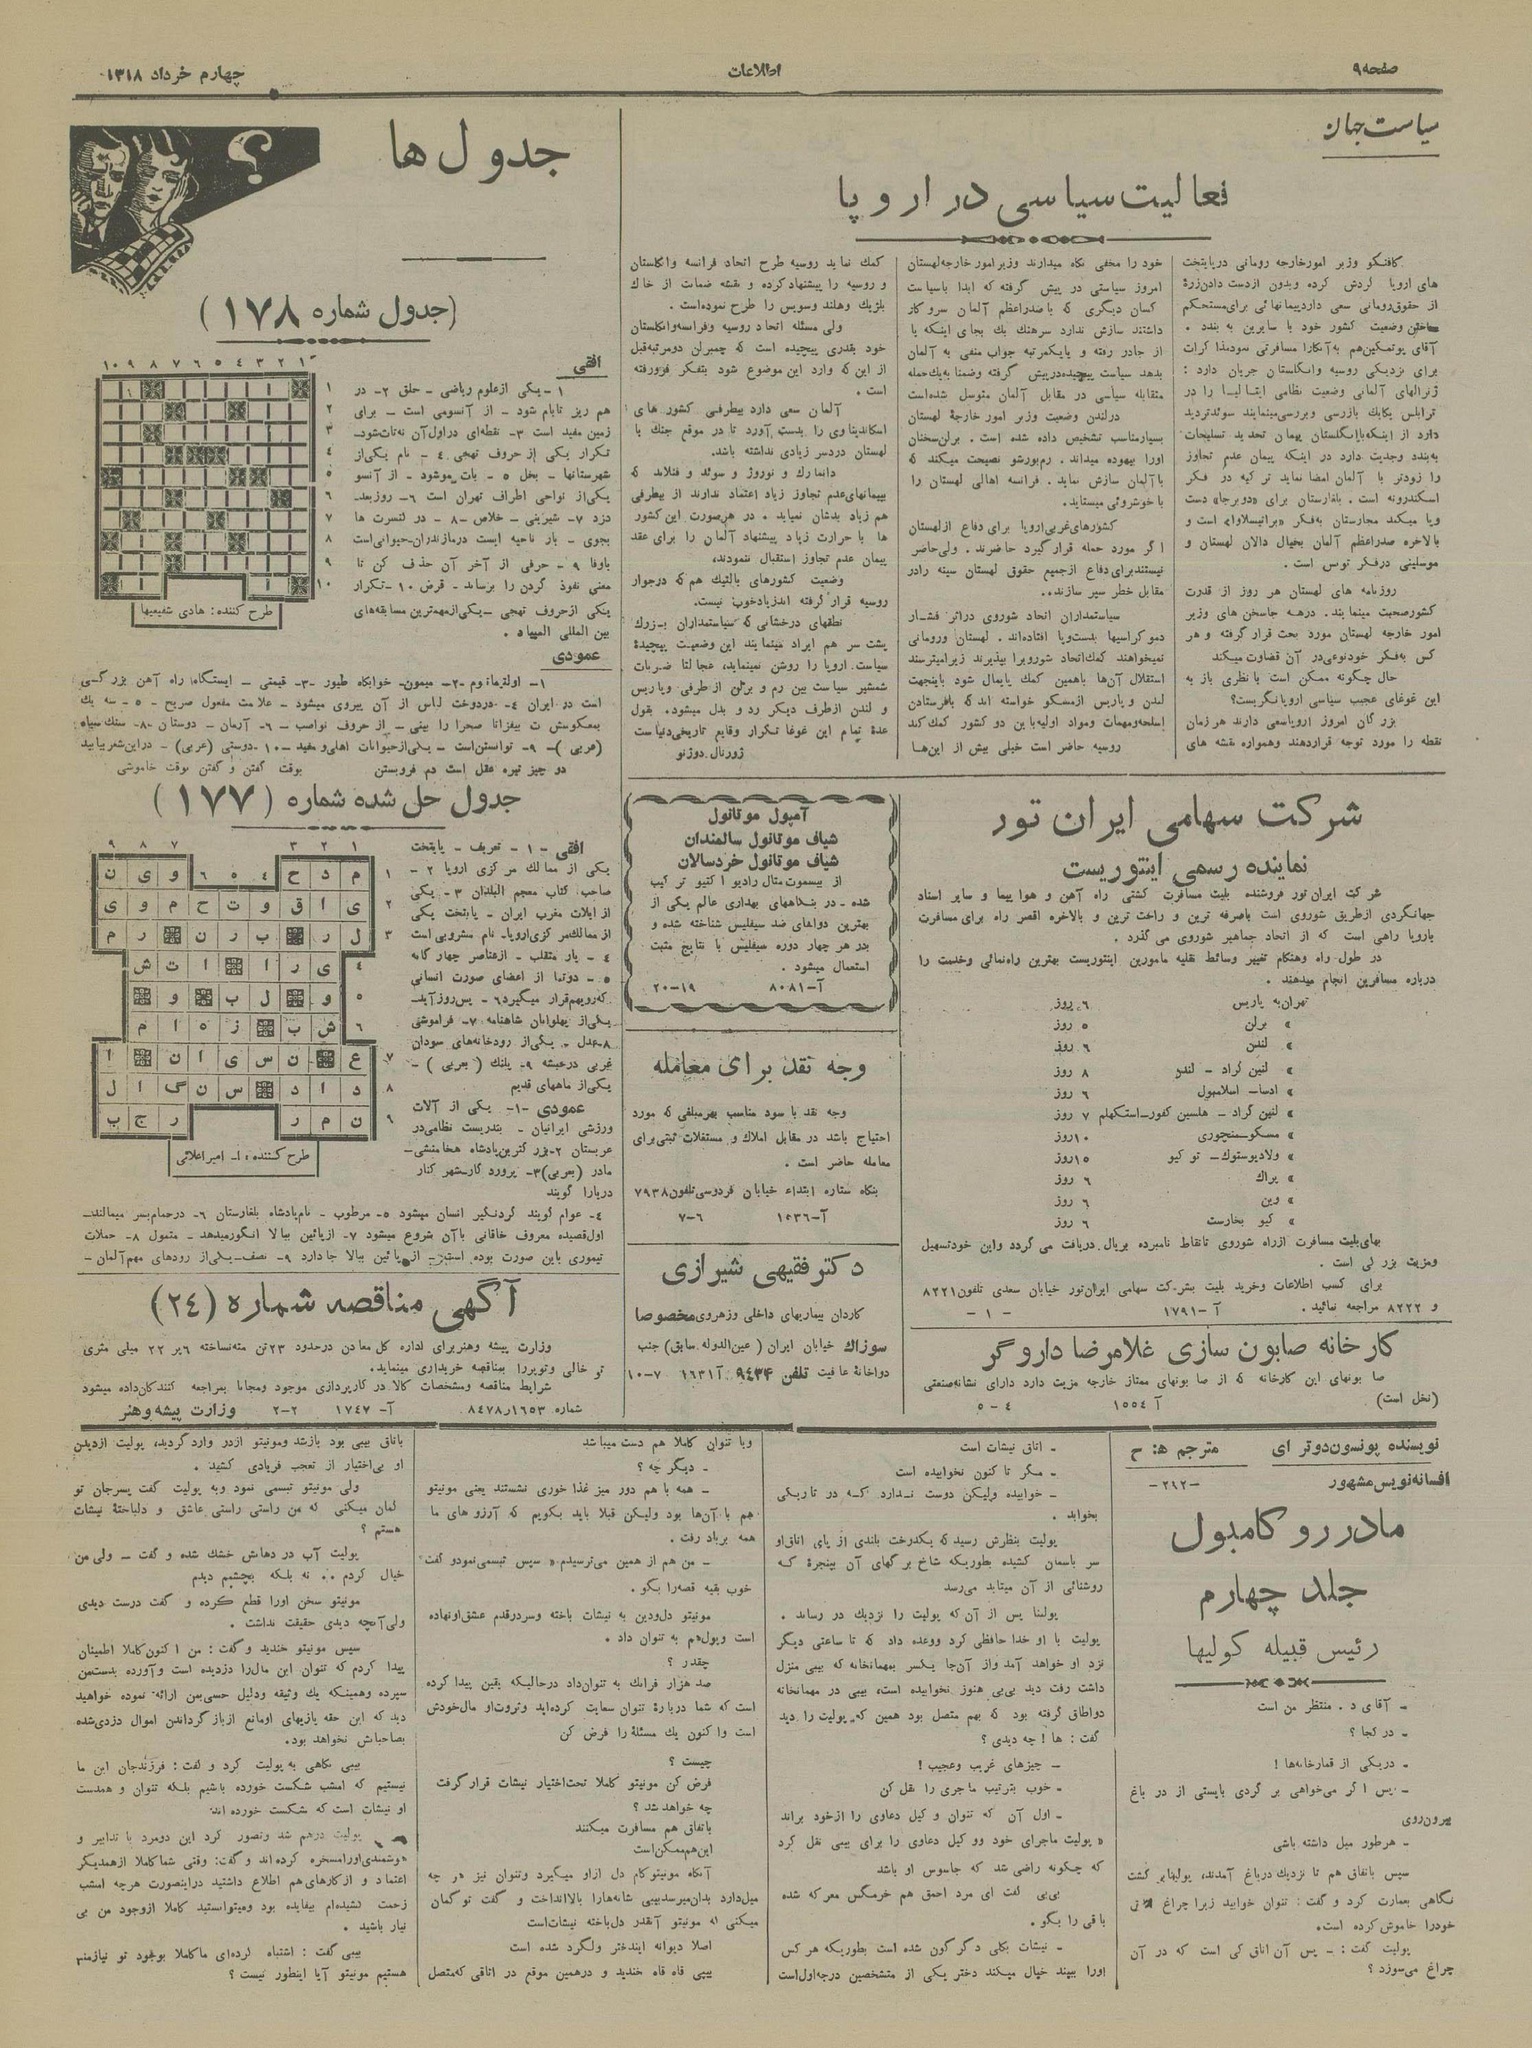 صفحه ۹
اطلاعات
چهارم خرداد ۱۳۱۸
سیاست جهان
فعالیت سیاسی در اروپا
گافنکو وزیر امورخارجه رومانی درپایتخت
های اروپا گردش کرده وبدون ازدست دادن‌زرهٔ
از حقوق‌رومانی سعی داردپیمانهائی برای‌مستحکم
ساختن وضعیت کشور خود با سایرین به بندد .
آقای پوتمکین‌هم به‌آنکارا مسافرتی نمودمذاکرات
برای نزدیکی روسیه وانگلستان جریان دارد :
ژنرالهای آلمانی وضعیت نظامی ایتالیا را در
ترابلس یکایک بازرسی وبررسی‌مینمایند سوئدتردید
دارد از اینکه‌باانگلستان پیمان تحدید تسلیحات
به‌بندد وجدیت دارد در اینکه پیمان عدم تجاوز
را زودتر با آلمان امضا نماید ترکیه در فکر
اسکندرونه است . بلغارستان برای «دوبرجا» دست
وپا میکند مجارستان به‌فکر «براتیسلاوا» است و
بالاخره صدراعظم آلمان بخیال دالان لهستان و
موسلینی درفکر تونس است .
روزنامه های لهستان هر روز از قدرت
کشورصحبت مینمایند. درهمه جاسخن های وزیر
امور خارجه لهستان مورد بحث قرارگرفته و هر
کس به‌فکر خودنوعی‌در آن قضاوت میکند
حال چگونه ممکن است با نظری باز به
این غوغای عجیب سیاسی اروپانگریست؟
بزرگان امروز اروپاسعی دارند هرزمان
نقطه را مورد توجه قراردهند وهمواره نقشه های
خود را مخفی نگاه میدارند وزیرامور خارجه‌لهستان
امروز سیاستی در پیش گرفته که ابدا باسیاست
کسان دیگری که باصدراعظم آلمان سروکار
داشتند سازش ندارد سرهنگ بک بجای اینکه یا
از جادر رفته و یایکمرتبه جواب منفی به آلمان
بدهد سیاست پیچیده‌درپیش گرفته وضمنا به‌یک‌حمله
متقابله سیاسی در مقابل آلمان متوسل شده‌است
درلندن وضعیت وزیر امور خارجهٔ لهستان
بسیارمناسب تشخیص داده شده است . برلن‌سخنان
اورا بیهوده میداند. رم‌بورشو نصیحت میکند که
باآلمان سازش نماید. فرانسه اهالی لهستان را
باخوشروئی میستاید.
کشورهای‌غربی‌اروپا برای دفاع ازلهستان
اگر مورد حمله قرارگیرد حاضرند. ولی‌حاضر
نیستندبرای‌دفاع ازجمیع حقوق لهستان سینه رادر
مقابل خطر سپر سازند.
سیاستمداران اتحاد شوروی دراثر فشار
دموکراسیها بدست‌وپا افتاده‌اند. لهستان ورومانی
نمیخواهند کمک‌اتحاد شوروبرا بپذیرند زیرامیترسند
استقلال آن‌ها باهمین کمک پایمال شود باینجهت
لندن وپاریس ازمسکو خواسته اندکه بافرستادن
اسلحه‌ومهمات ومواد اولیه‌باین دو کشور کمک کند
روسیه حاضر است خیلی بیش از این‌ها
کمک نماید روسیه طرح اتحاد فرانسه وانگلستان
و روسیه را پیشنهادکرده و نقشه ضمانت از خاک
بلژیک وهلند وسویس را طرح نموده‌است .
ولی مسئله اتحاد روسیه وفرانسه‌وانگلستان
خود بقدری پیچیده است که چمبرلن دومرتبه‌قبل
از این‌که وارد این موضوع شود بتفکر فرورفته
است .
آلمان سعی دارد بیطرفی کشور های
اسکاندیناوی را بدست آورد تا در موقع جنگ با
لهستان دردسر زیادی نداشته باشد.
دانمارک و نوروژ و سوئد و فنلاند که
بپیمانهای‌عدم تجاوز زیاد اعتماد ندارند از بیطرفی
هم زیاد بدشان نمیاید . در هرصورت این‌کشور
ها با حرارت زیاد پیشنهاد آلمان را برای عقد
پیمان عدم تجاوز استقبال ننمودند،
وضعیت کشورهای بالتیک هم‌که درجوار
روسیه قرارگرفته اندزیادخوب نیست.
نطقهای درخشانی که سیاستمداران بزرگ
پشت سر هم ایراد مینمایند این وضعیت پیچیدهٔ
سیاست اروپا را روشن نمینماید، عجالتا ضربات
شمشیر سیاست بین رم و برلن از طرفی وپاریس
و لندن ازطرف دیگر رد و بدل میشود. بقول
عدهٔ تمام این غوغا تکرار وقایع تاریخی‌دنیاست
ژورنال دوژنو
جدول ها
(جدول شماره ۱۷۸)
افقی
۱ ۲ ۳ ۴ ۵ ۶ ۷ ۸ ۹ ۱۰
۱
۲
۳
۴
۵
۶
۷
۸
۹
۱۰
طرح کننده: هادی شفیعیها
۱ - یکی ازعلوم ریاضی - حلق ۲- در
هم ریز تابام شود - از آنسومی است - برای
زمین مفید است ۳- نقطه‌ای دراول‌آن نه‌تات‌شود-
تکرار یکی از حروف تهجی ۴ - نام یکی‌از
شهرستانها - بخل ۵ - بات میوشود - از آنسو
یکی‌از نواحی اطراف تهران است ۶- روزبعد-
دزد ۷- شیرینی - خلاص -۸ - در کنسرت ها
بجوی - بار ناحیه ایست درمازندران-حیوانی‌است
باوفا ۹ - حرفی از آخر آن حذف کن تا
معنی نفوذ کردن را برساند - قرض ۱۰ -تکرار
یکی ازحروف تهجی -یکی‌ازمهمترین مسابقه‌های
بین المللی المپیاد .
عمودی
۱- اولتیماتوم -۲- میمون- خوابگاه طیور -۳- قیمتی - ایستگاه راه آهن بزرگی
است در ایران ۴- دردوخت لباس از آن پیروی میشود - علامت مفعول صریح - ۵ - سه یک
بمعکوسش ت بیفزاتا صحرا را بینی - از حروف نواصب -۶- آرمان - دوستان -۸- سنک سیاه
(عربی )- ۹- توانستن‌است - یکی‌ازحیوانات اهلی‌ومفید -۱۰- دوستی (عربی) - دراین‌شعربیابید
دو چیز تیره عقل است دم فروبستن بوقت گفتن و گفتن بوقت خاموشی
جدول حل شده شماره (۱۷۷)
۱ ۲ ۳ ۴ ۵ ۶ ۷ ۸ ۹
۱ م د ح و ی ن
۲ ی ا ق و ت ح م و ی
۳ ل ر ب ر ن ر م
۴ ی ر ا ا ت ش
۵ و ل ب و
۶ ش ب ز ه ا م
۷ ع ن س ی ا ن ا
۸ د ا د س ن گ ا ل
۹ ن م ر ر ج ب
طرح کننده : ا- امیراعلائی
افقی - ۱ - تعریف - پایتخت
یکی از ممالک مرکزی اروپا ۲ -
صاحب کتاب معجم البلدان ۳- یکی
از ایلات مغرب ایران - پایتخت یکی
از ممالک‌مرکزی‌اروپا- نام مشروبی است
۴ - یار متقلب - ازعناصر چهارگانه
۵ - دوتما از اعضای صورت انسانی
که‌رویهم‌قرار میگیرد۶ - پس‌روزآید-
یکی‌از پهلوانان شاهنامه ۷- فراموشی
۸-عدل - یکی‌از رودخانه‌های سودان
غربی درحبشه ۹- پلنک ( بعربی ) -
یکی‌از ماههای قدیم
عمودی -۱- یکی از آلات
ورزشی ایرانیان - بندریست نظامی‌در
عربستان ۲-بزرگترین‌پادشاه هخامنشی-
مادر (بعربی)۳- پرورد گار-شهر کنار
دریارا گویند
۴- عوام گویند گردنگیر انسان میشود ۵- مرطوب - نام‌پادشاه بلغارستان ۶- درحمام‌بسر میمالند-
اول‌قصیده معروف خاقانی باآن شروع میشود ۷ -ازپائین ببالا انگورمیدهد - متمول ۸- حملات
تیموری باین صورت بوده است - از پائین ببالا جادارد ۹- نصف-یکی‌از رودهای مهم‌آلمان -
آگهی مناقصه شماره (۲۴)
وزارت پیشه وهنربرای اداره کل معادن درحدود ۲۳تن مته‌نساخته ۶پر ۲۲ میلی متری
تو خالی وتوپررا بمناقصه خریداری مینماید.
شرایط مناقصه ومشخصات کالا در کارپردازی موجود ومجانا بمراجعه کنندگان‌داده میشود
شماره ۸۴۷۸ر۱۶۵۳ آ- ۱۷۴۷ ۲-۲ وزارت پیشه‌وهنر
آمپول موتانول
شیاف موتانول سالمندان
شیاف موتانول خردسالان
از بیسموت‌متال رادیو اکتیو ترکیب
شده - در بنگاههای بهداری عالم یکی از
بهترین دواهای ضد سیفلیس شناخته شده و
بدر هر چهار دوره سیفلیس با نتایج مثبت
استعمال میشود .
آ-۸۰۸۱ ۱۹-۲۰
وجه نقد برای معامله
وجه نقد با سود مناسب بهرمبلغی که مورد
احتیاج باشد در مقابل املاک و مستغلات ثبتی‌برای
معامله حاضر است .
بنگاه ستاره ابتداء خیابان فردوسی‌تلفون۷۹۳۸
آ-۱۵۳۶ ۶-۷
دکتر فقیهی شیرازی
کاردان بیماریهای داخلی وزهروی‌مخصوصا
سوزاک خیابان ایران ( عین‌الدوله سابق) جنب
دواخانهٔ عافیت تلفن ۹۴۳۴ آ۱۶۳۱ ۷-۱۰
شرکت سهامی ایران تور
نماینده رسمی اینتوریست
شرکت ایران‌تور فروشنده بلیت مسافرت کشتی راه آهن و هواپیما و سایر اسناد
جهانگردی ازطریق شوروی است باصرفه ترین و راحت ترین و بالاخره اقصر راه برای‌مسافرت
باروپا راهی است که از اتحاد جماهیر شوروی میگذرد .
در طول راه وهنگام تغییر وسائط نقلیه مامورین اینتوریست بهترین راه‌نمائی وخدمت را
درباره مسافرین انجام میدهند .
تهران‌به پاریس ۶ روز
» برلن ۵ روز
» لندن ۶ روز
» لنین گراد - لندن ۸ روز
» ادسا- اسلامبول ۶ روز
» لنین گراد - هلسین کفور-استکهلم ۷ روز
» مسکو-منچوری ۱۰روز
» ولادیوستوک- توکیو ۱۵روز
» پراک ۶ روز
» وین ۶ روز
» کیو بخارست ۶ روز
بهای‌بلیت مسافرت ازراه شوروی تانقاط نامبرده بریال دریافت می گردد واین خودتسهیل
ومزیت بزرگی است .
برای کسب اطلاعات وخرید بلیت بشرکت سهامی ایران‌تور خیابان سعدی تلفون۸۲۲۱
و ۸۲۲۲ مراجعه نمائید. آ -۱۷۹۱ - ۱ -
کارخانه صابون سازی غلامرضا داروگر
صابونهای این کارخانه که از صابونهای ممتاز خارجه مزیت دارد دارای نشانه‌صنعتی
(نخل است) آ ۱۵۵۴ ۴ - ۵
نویسنده پونسون‌دوترای مترجم ه: ح
افسانه‌نویس‌مشهور -۲۶۲-
مادر روکامبول
جلد چهارم
رئیس قبیله کولیها
- آقای د . منتظر من است
- در کجا ؟
- دریکی از قمارخانه‌ها !
- پس اگر می‌خواهی برگردی بایستی از در باغ
بیرون‌روی
- هرطور میل داشته باشی
سپس باتفاق هم تا نزدیک درباغ آمدند، یولینابر گشت
نگاهی بعمارت کرد و گفت : تنوان خوابید زیرا چراغ اتاق
خودرا خاموش‌کرده است.
پولیت گفت : - پس آن اتاق کی است که در آن
چراغ می‌سوزد ؟
- اتاق نیشات است
- مگر تاکنون نخوابیده است
- خوابیده ولیکن دوست ندارد که در تاریکی
بخوابد .
پولیت بنظرش رسید که یک‌درخت بلندی از پای اتاق‌او
سر باسمان کشیده بطوریکه شاخ برگهای آن بپنجرهٔ که
روشنائی از آن میتابد می‌رسد
یولینا پس از آن‌که پولیت را نزدیک در رساند .
پولیت با او خدا حافظی کرد ووعده داد که تا ساعتی دیگر
نزد او خواهد آمد واز آن‌جا یکسر بمهمانخانه که بیبی منزل
داشت رفت دید بی‌بی هنوز نخوابیده است، بیبی در مهمانخانه
دواطاق گرفته بود که بهم متصل بود همین که پولیت را دید
گفت : ها ! چه دیدی ؟
- چیزهای غریب وعجیب !
- خوب بترتیب ماجری را نقل کن
- اول آن که تنوان و کیل دعاوی را ازخود براند
« پولیت ماجرای خود وو کیل دعاوی را برای بیبی نقل کرد
که چگونه راضی شد که جاسوس او باشد
بی‌بی گفت ای مرد احمق هم خرمگس معرکه شده
باقی را بگو .
- نیشات بکلی دگرگون شده است بطوریکه هرکس
اورا ببیند خیال میکند دختر یکی از متشخصین درجه‌اول‌است
وبا تنوان کاملا هم دست میباشد
- دیگر چه ؟
- همه با هم دور میز غذا خوری نشستند یعنی مونیتو
هم با آن‌ها بود ولیکن قبلا باید بگویم که آرزو های ما
همه برباد رفت .
- من هم از همین می‌ترسیدم» سپس تبسمی‌نمودو گفت
خوب بقیه قصه‌را بگو .
مونیتو دل‌ودین به نیشات باخته وسردرقدم عشق‌اونهاده
است وپول‌هم به تنوان داد .
چقدر ؟
صد هزار فرانک به تنوان‌داد درحالیکه یقین پیدا کرده
است که شما دربارهٔ تنوان سعایت کرده‌اید وثروت‌او مال‌خودش
است واکنون یک مسئلهٔ را فرض کن
چیست ؟
فرض کن مونیتو کاملا تحت‌اختیار نیشات قرارگرفت
چه خواهد شد ؟
باتفاق هم مسافرت میکنند
این‌هم‌ممکن‌است
آنگاه مونیتوکام دل ازاو میگیرد وتنوان نیز هر چه
میل‌دارد بدان‌میرسد بیبی شانه‌هارا بالاانداخت و گفت توگمان
میکنی که مونیتو آنقدر دل‌باخته نیشات‌است
اصلا دیوانه ایندختر ولگرد شده است
بیبی قاه قاه خندید و درهمین موقع در اتاقی که‌متصل
باتاق بیبی بود بازشد ومونیتو ازدر واردگردید، پولیت ازدیدن
او بی‌اختیار از تعجب فریادی کشید .
ولی مونیتو تبسمی نمود وبه پولیت گفت پسرجان تو
گمان میکنی که من راستی راستی عاشق و دلباختهٔ نیشات
هستم ؟
پولیت آب در دهانش خشک شده و گفت - ولی من
خیال کردم .. نه بلکه بچشمم دیدم
مونیتو سخن اورا قطع کرده و گفت درست دیدی
ولی‌آنچه دیدی حقیقت نداشت .
سپس مونیتو خندید و گفت : من اکنون‌کاملا اطمینان
پیدا کردم که تنوان این مال‌را دزدیده است وآورده بدست‌من
سپرده وهمینکه یک وثیقه ودلیل حسی‌بمن ارائه نموده خواهید
دید که این حقه بازیهای اومانع ازبازگرداندن اموال دزدی‌شده
بصاحبانش نخواهد بود.
بیبی نگاهی به پولیت کرد و گفت : فرزندجان این ما
نیستیم که امشب شکست خورده باشیم بلکه تنوان و همدست
او نیشات است که شکست خورده اند
پولیت درهم شد وتصور کرد این دومرد با تدابیر و
هوشمندی‌اورامسخره کرده‌اند و گفت: وقتی شماکاملا ازهمدیگر
اعتماد و ازکارهای‌هم اطلاع داشتید دراینصورت هرچه امشب
زحمت کشیده‌ام بیفایده بود ومیتوانستید کاملا ازوجود من بی
نیاز باشید .
بیبی گفت : اشتباه کرده‌ای ماکاملا بوجود تو نیازمند
هستیم مونیتو آیا اینطور نیست ؟